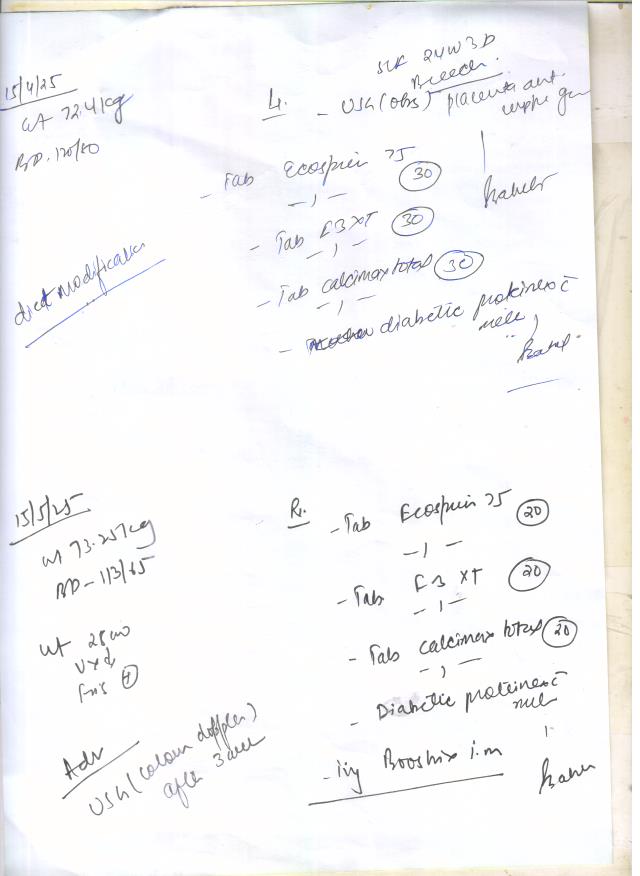 15/4/25
wt 72.4kg
BP. 120/80
diet modification
SLF 24W3D
Breech.
- USG (obs) placenta ant.
- Tab Ecospirin 75 (30)
- 1 -
- Tab FB XT (30)
- 1 -
- Tab calcimax total (30)
- 1 -
- diabetic proteinex c̄
milk
15/5/25
wt 73.25kg
BP - 113/65
ut 28 wo
FHS (+)
Adv
USG (colour doppler)
after 3 week
R.
- Tab Ecospirin 75 (20)
- 1 -
- Tab FB XT (20)
- 1 -
- Tab calcimax total (20)
- 1 -
- Diabetic proteinex c̄
milk
- inj Boostrix i.m